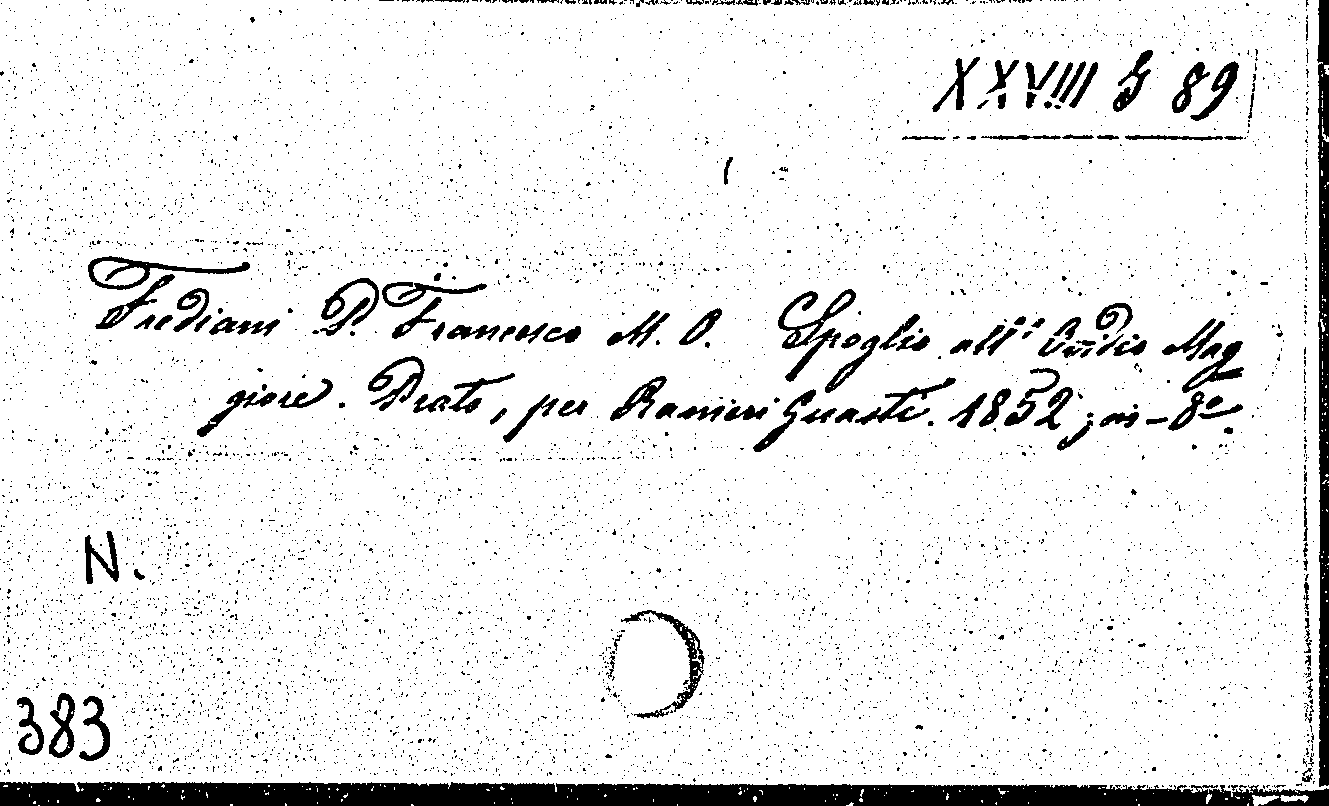 XXVIII G 89
Frediani P. Francesco M. O. Spoglio all' Ovidio Mag
giore. Prato, per Ranieri Guasti. 1852; in-8º.
N.
383